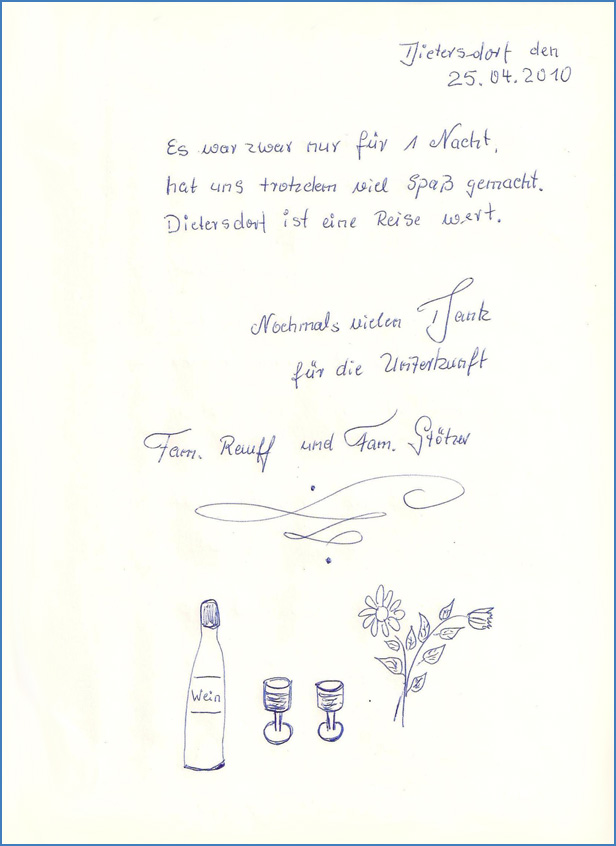 Dietersdorf den
25.04.2010
Es war zwar nur für 1 Nacht,
hat uns trotzdem viel Spaß gemacht.
Dietersdorf ist eine Reise wert.
Nochmals vielen Dank
für die Unterkunft
Fam. Rauff und Fam. Stötzer
Wein